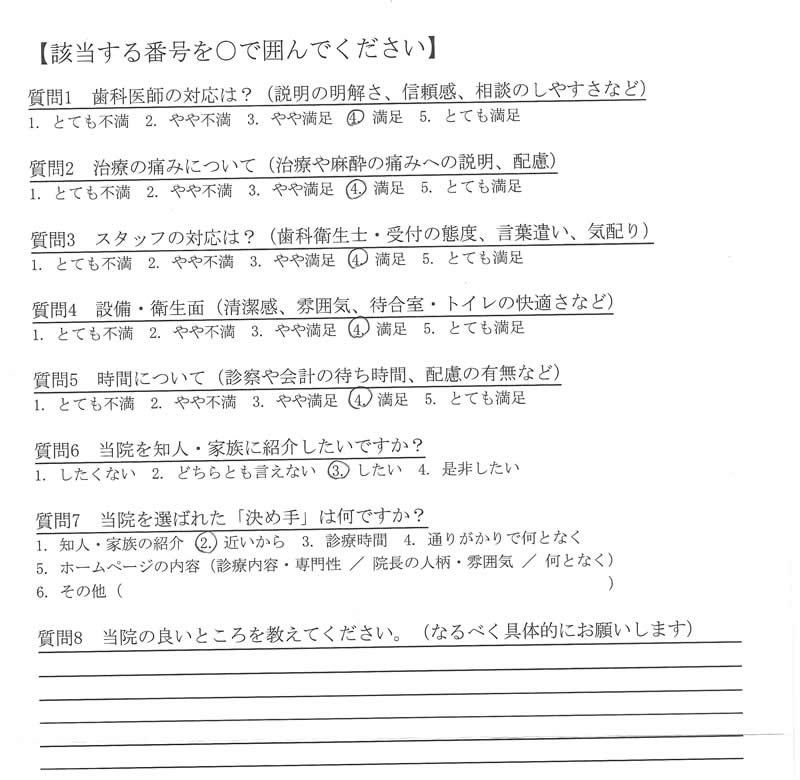 【該当する番号を○で囲んでください】
質問1　歯科医師の対応は？（説明の明解さ、信頼感、相談のしやすさなど）
1. とても不満　2. やや不満　3. やや満足　4. 満足　5. とても満足
質問2　治療の痛みについて（治療や麻酔の痛みへの説明、配慮）
1. とても不満　2. やや不満　3. やや満足　4. 満足　5. とても満足
質問3　スタッフの対応は？（歯科衛生士・受付の態度、言葉遣い、気配り）
1. とても不満　2. やや不満　3. やや満足　4. 満足　5. とても満足
質問4　設備・衛生面（清潔感、雰囲気、待合室・トイレの快適さなど）
1. とても不満　2. やや不満　3. やや満足　4. 満足　5. とても満足
質問5　時間について（診察や会計の待ち時間、配慮の有無など）
1. とても不満　2. やや不満　3. やや満足　4. 満足　5. とても満足
質問6　当院を知人・家族に紹介したいですか？
1. したくない　2. どちらとも言えない　3. したい　4. 是非したい
質問7　当院を選ばれた「決め手」は何ですか？
1. 知人・家族の紹介　2. 近いから　3. 診療時間　4. 通りがかりで何となく
5. ホームページの内容（診療内容・専門性 ／ 院長の人柄・雰囲気 ／ 何となく）
6. その他（　　　　　　　　　　　　　　　　　　　　）
質問8　当院の良いところを教えてください。（なるべく具体的にお願いします）